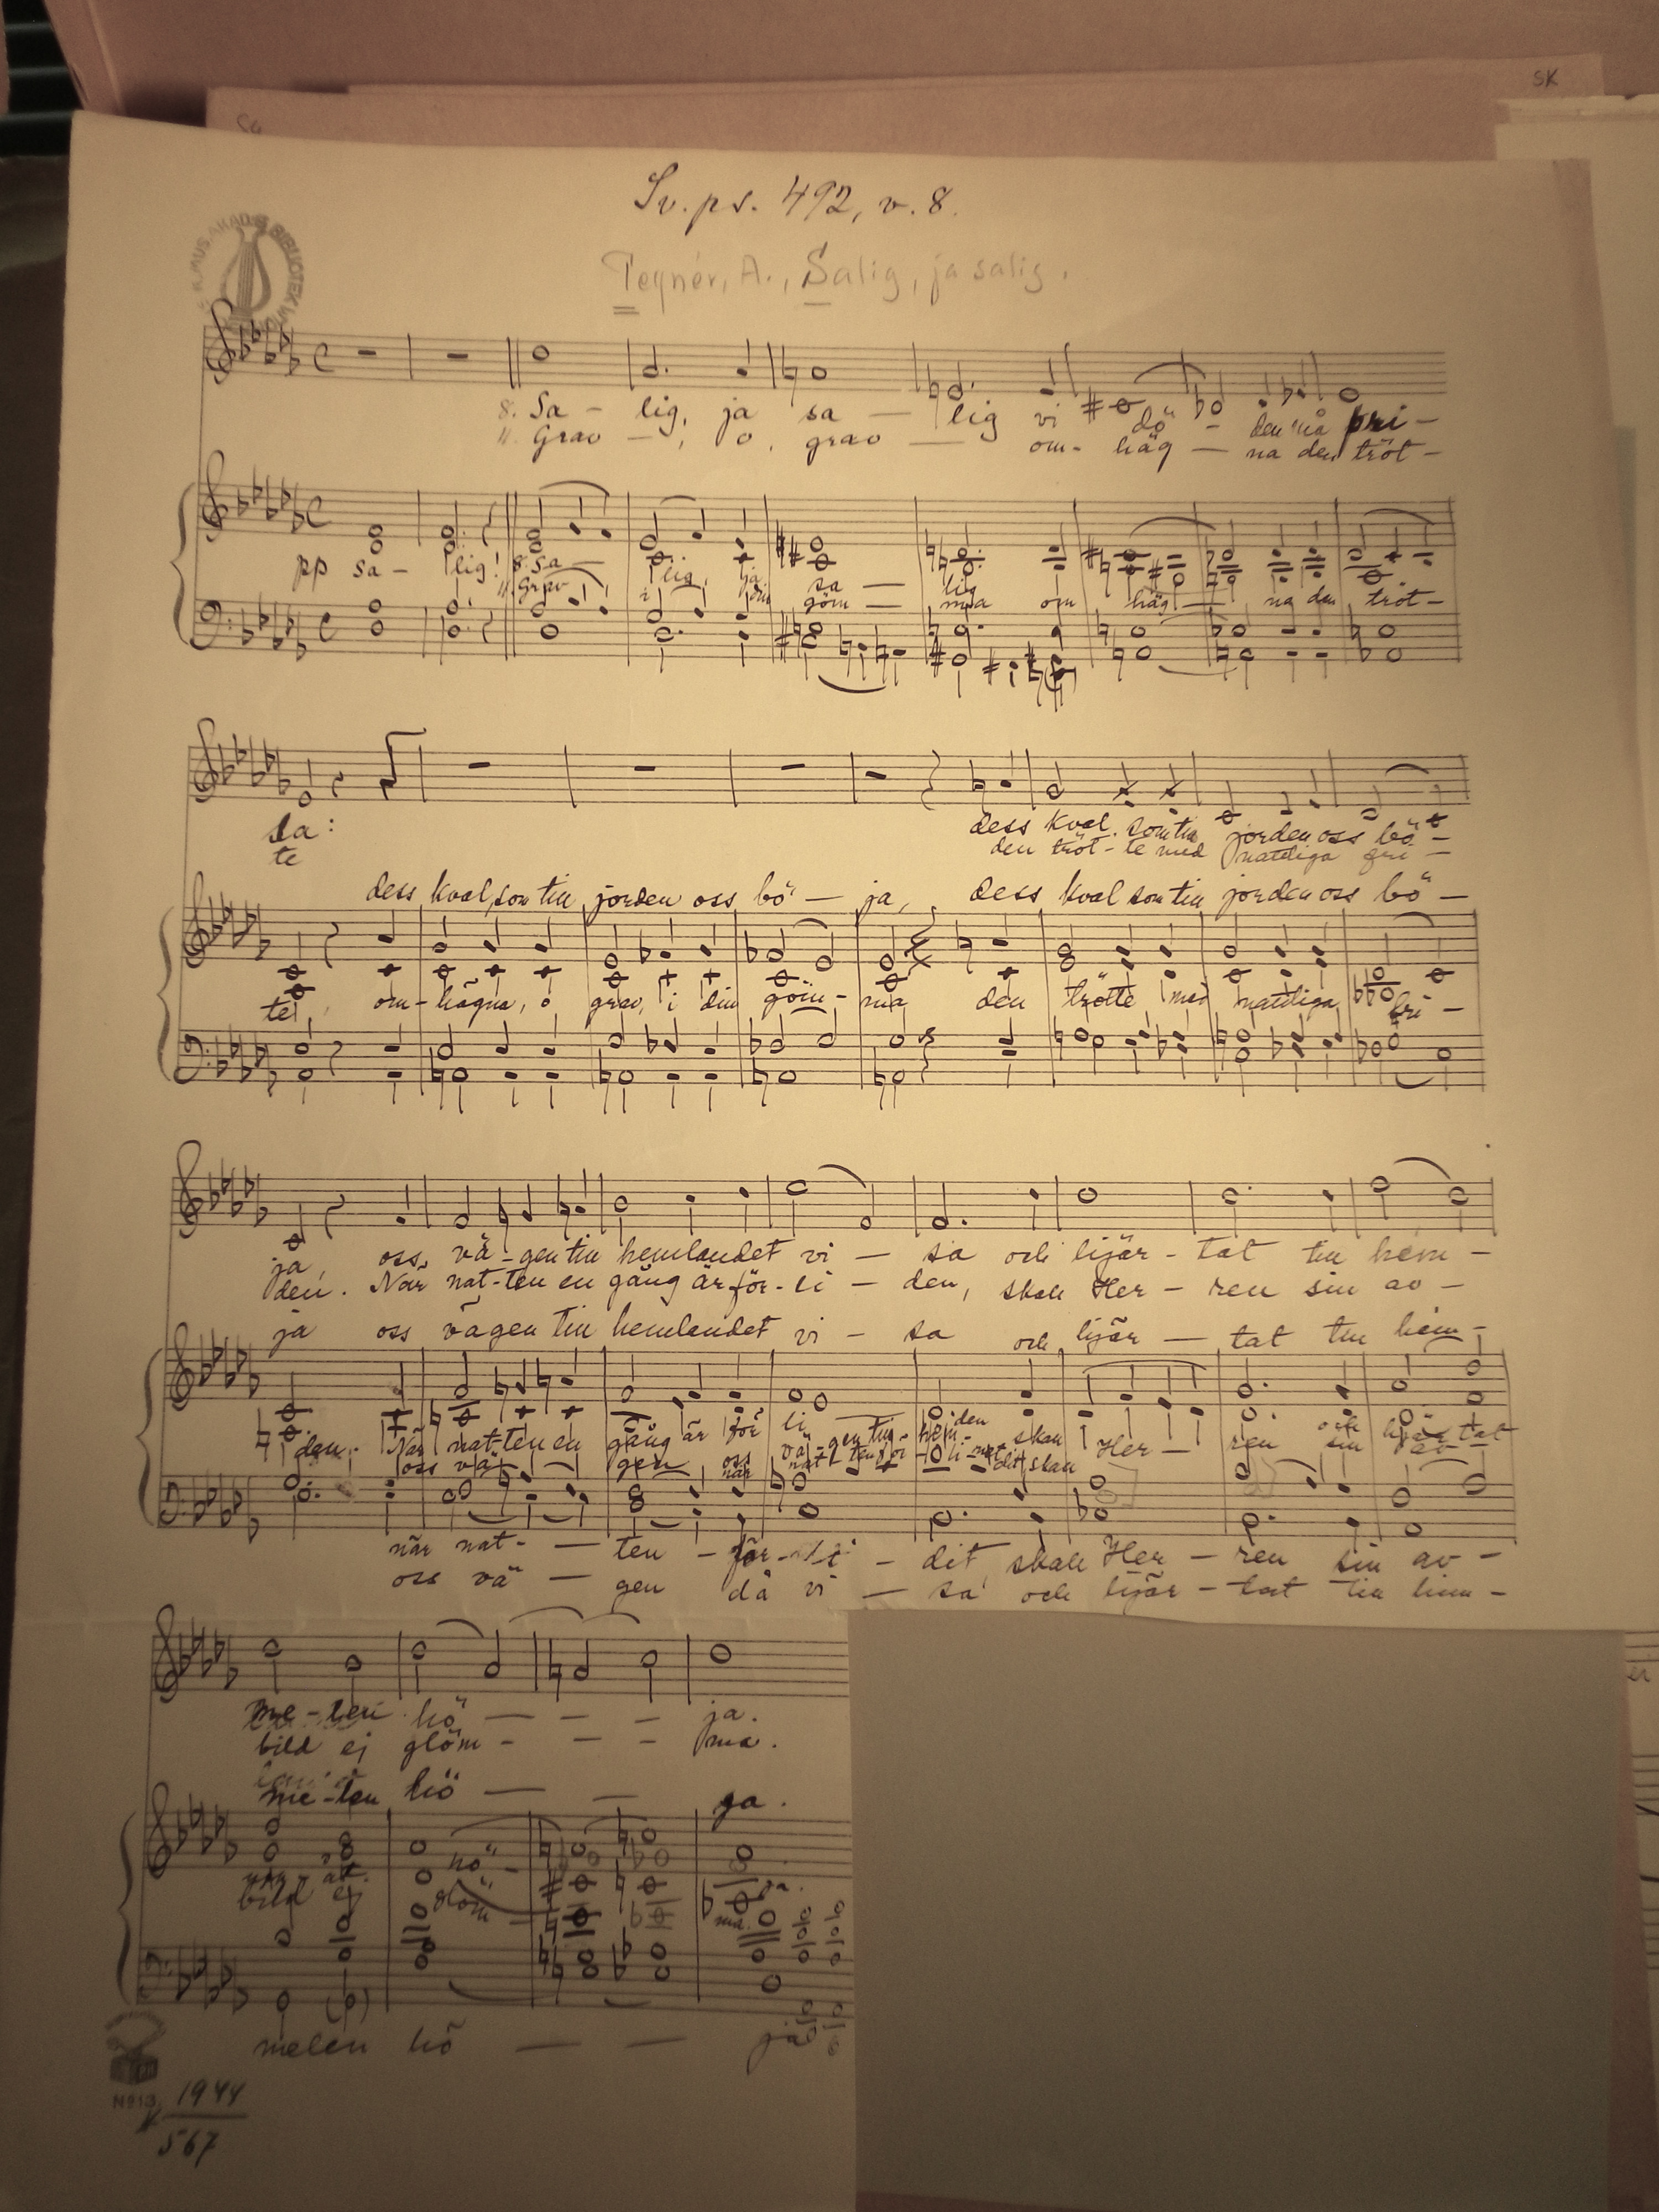 SK
Sv. ps. 492, v. 8.
K. MUS. AKAD:S BIBLIOTEK
Tegnér, A., Salig, ja salig.
8. Sa - lig, ja sa - lig vi dö - den må pri -
11. Grav -, o, grav - om - häg - na den tröt -
pp sa - lig! 8. Sa - lig, ja sa - lig
11. Grav i din göm - ma om häg - na den tröt -
sa:
te
dess kval, som till jorden oss bö -
den tröt - te med nattliga fri -
dess kval, som till jorden oss bö - ja, dess kval som till jorden oss bö -
te, om - hägna, o grav, i din göm - ma den trötte med nattliga fri -
ja, oss vä - gen till hemlandet vi - sa och hjär - tat till him -
den. När nat - ten en gång är för - li - den, skall Her - ren sin av -
ja oss vägen till hemlandet vi - sa och hjär - tat till him -
den. När nat - ten en gång är för li - den skall Her - ren sin av -
oss vä - gen oss vä - gen till hem - och hjär - tat
när nat - ten för - li - dit skall
när nat - ten - för - li - dit, skall Her - ren sin av -
oss vä - gen då vi - sa och hjär - tat till him -
me - len hö - - - ja.
bild ej glöm - - - ma.
me - len hö - - ja.
hö -
bild ej glöm - ma.
melen hö - - ja
No 13
1944
567